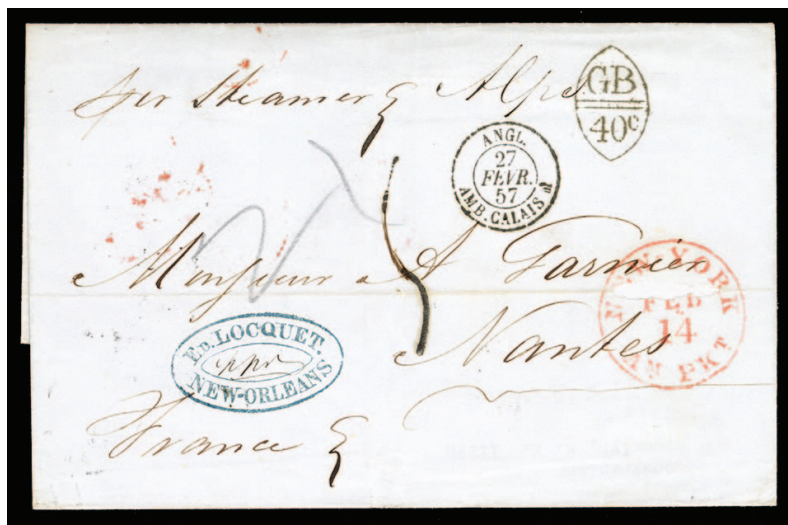 per Steamer Alps
GB
40c
ANGL.
27
FEVR.
57
AMB. CALAIS
Monsieur A Garnier
NEW YORK
FEB
14
AM PKT
Nantes
ED. LOCQUET.
NEW-ORLEANS
France